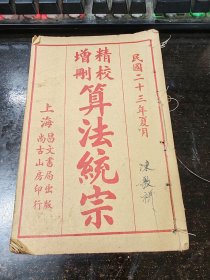 民國二十三年夏月
精校
增刪
算法統宗
上海
昌文書局出版
尚古山房印行